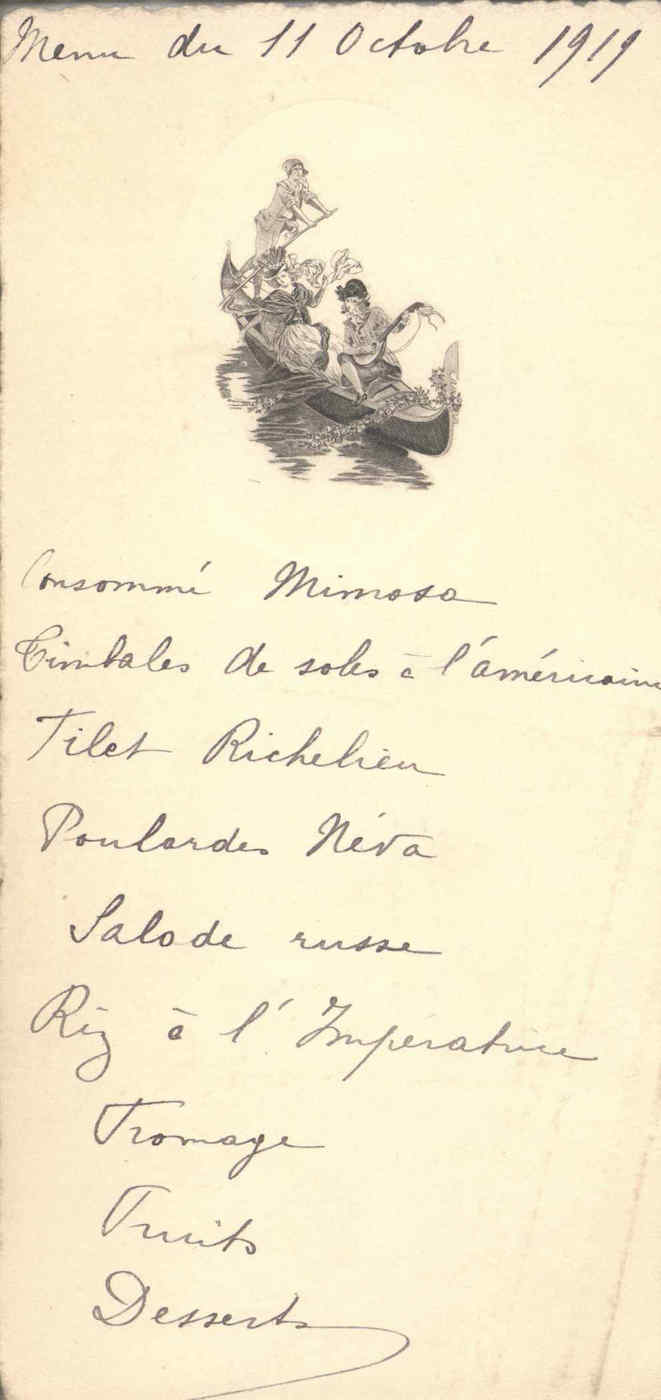 Menu du 11 Octobre 1919
Consommé Mimosa
Timbales de soles à l'américaine
Filet Richelieu
Poulardes Néva
Salade russe
Riz à l'Impératrice
Fromage
Fruits
Desserts